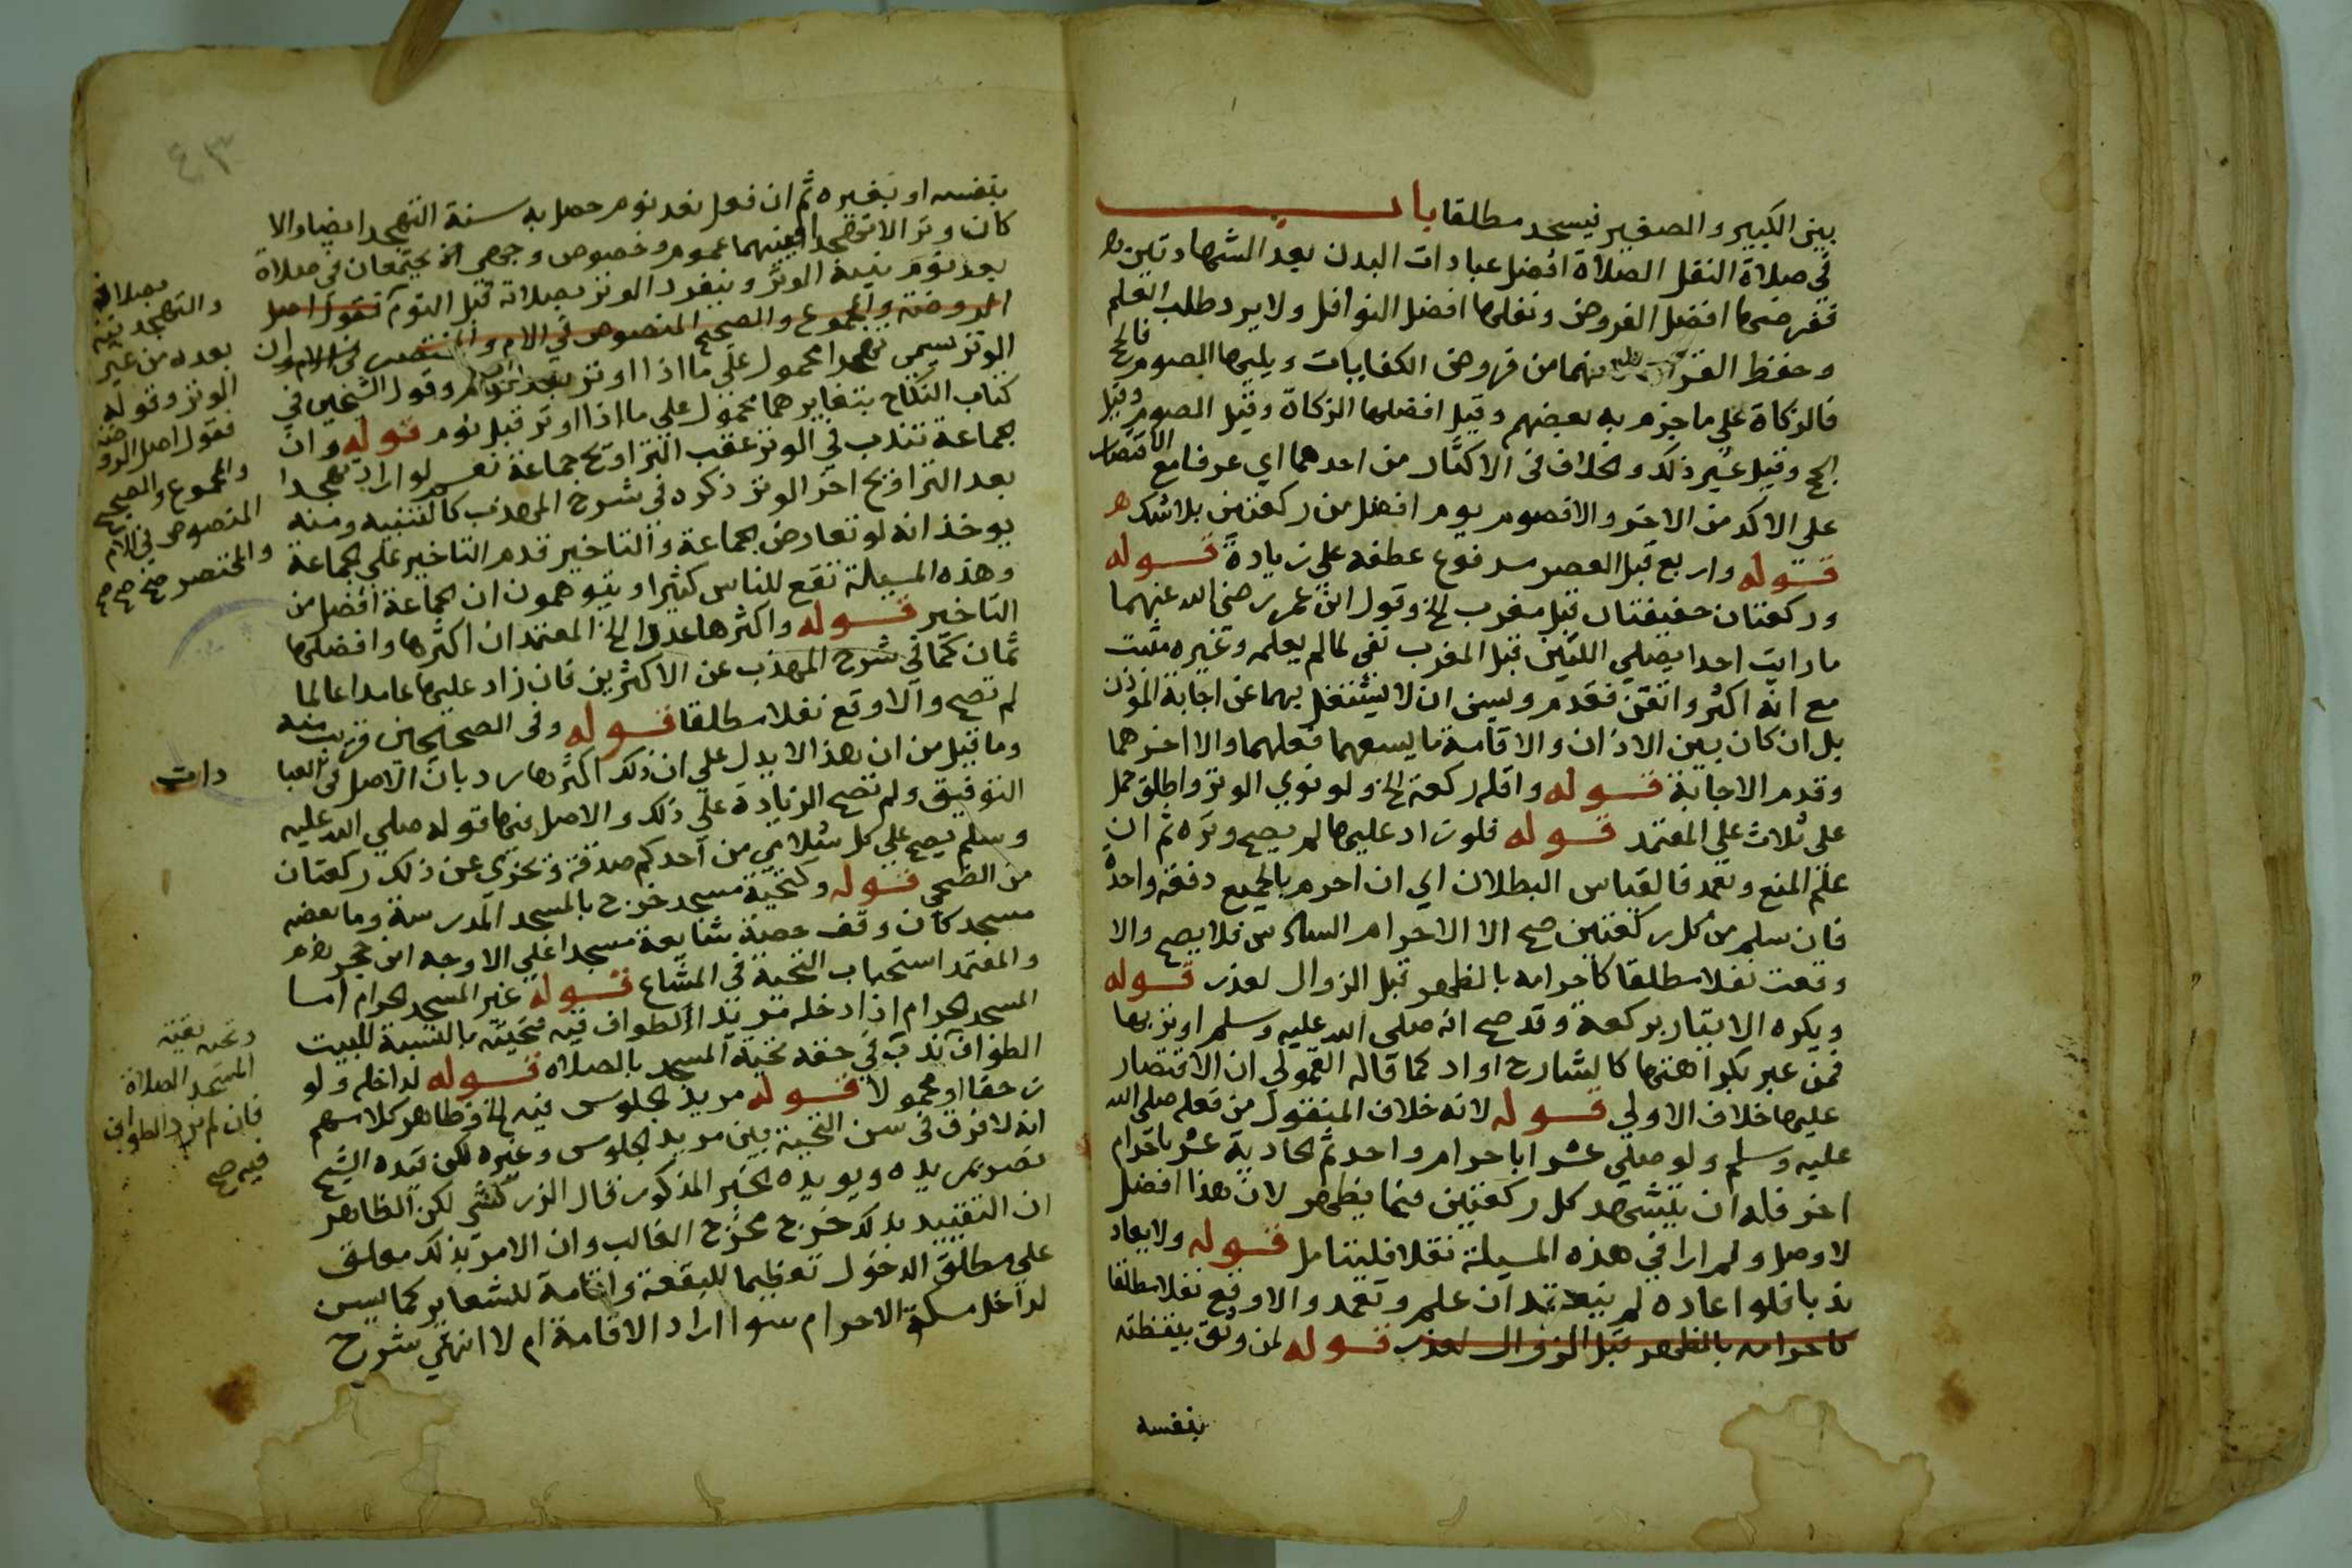 بين الكبير والصغير فيسجد مطلقا باب
في صلاة النفل الصلاة افضل عبادات البدن بعد الشهادتين
ففرضها افضل الفروض ونفلها افضل النوافل ولا يرد طلب العلم
وحفظ القرآن لانهما من فروض الكفايات ويليها الصوم فالحج
فالزكاة على ما جزم به بعضهم وقيل افضلها الزكاة وقيل الصوم وقيل
الحج وقيل غير ذلك والخلاف في الاكثار من احدهما اي عرفا مع الاقتصار
على الاكد من الاخر والا فصوم يوم افضل من ركعتين بلا شك
قوله واربع قبل العصر مرفوع عطفه على زيادة قوله
وركعتان خفيفتان قبل مغرب الخ وقول ابن عمر رضي الله عنهما
ما رايت احدا يصلي اللتين قبل المغرب نفي لما لم يعلمه وغيره مثبت
مع انه اكثر واتقن فقدم ويسن ان لا يشتغل بهما عن اجابة المؤذن
بل ان كان بين الاذان والاقامة ما يسعهما فعلهما والا اخرهما
وقدم الاجابة قوله واقله ركعة الخ ولو نوي الوتر واطلق حمل
على ثلاث على المعتمد قوله فلو زاد عليها لم يصح وتره ثم ان
علم المنع وتعمد فالقياس البطلان اي ان احرم بالجميع دفعة واحدة
فان سلم من كل ركعتين صح الا الاحرام السادس فلا يصح والا
وقعت نفلا مطلقا كاحرامه بالظهر قبل الزوال لعذر قوله
ويكره الايتار بركعة وقد صح انه صلى الله عليه وسلم اوتر بها
فمن عبر بكراهتها كالشارح اراد كما قاله القمولي ان الاقتصار
عليها خلاف الاولي قوله لانه خلاف المنقول من فعله صلى الله
عليه وسلم ولو صلي عشرا باحرام واحد ثم الحادية عشر باحرام
اخر فله ان يتشهد كل ركعتين فيما يظهر لان هذا افضل
لا وصل ولم ار في هذه المسيلة نقلا فليتامل قوله ولا يعاد
ندبا فلو اعاده لم ينعقد ان علم وتعمد والا وقع نفلا مطلقا
كاحرامه بالظهر قبل الزوال لعذر قوله لمن وثق بيقظته
بنفسه
٤٣
بنفسه او بغيره ثم ان فعل بعد نوم حصل به سنة التهجد ايضا والا
كان وترا لا تهجدا فبينهما عموم وخصوص وجهي اذ يجتمعان في صلاة
بعد نوم بنية الوتر وينفرد الوتر بصلاته قبل النوم فقول اصل
الروضة والمجموع والصحيح المنصوص في الام والمختصر في الام ان
الوتر يسمى تهجدا محمول على ما اذا اوتر بعد نوم وقول الشيخين في
كتاب النكاح بتغايرهما محمول على ما اذا اوتر قبل نوم قوله وان
جماعة تندب في الوتر عقب التراويح جماعة نعم لو اراد تهجدا
بعد التراويح اخر الوتر ذكره في شرح المهذب كالتنبيه ومنه
يوخذ انه لو تعارض الجماعة والتاخير قدم التاخير على الجماعة
وهذه المسيلة تقع للناس كثيرا ويتوهمون ان الجماعة افضل من
التاخير قوله واكثرها عددا الخ المعتمد ان اكثرها وافضلها
ثمان كما في شرح المهذب عن الاكثرين فان زاد عليها عامدا عالما
لم تصح والا وقع نفلا مطلقا قوله وفي الصحيحين قريب منه
وما قيل من ان هذا لا يدل على ان ذلك اكثرها رد بان الاصل في العبا
التوقيف ولم تصح الزيادة على ذلك والاصل فيها قوله صلى الله عليه
وسلم يصبح على كل سلامي من احدكم صدقة وتجزي عن ذلك ركعتان
من الضحى قوله وكتحية مسجد خرج بالمسجد المدرسة وما بعضه
مسجد كان وقف حصة شايعة مسجدا على الاوجه ابن حجر
والمعتمد استحباب التحية في المشاع قوله غير المسجد الحرام اما
المسجد الحرام اذا دخله مريدا الطواف فيه فتحيته بالنسبة للبيت
الطواف ندب في حقه تحية المسجد بالصلاة قوله لداخله ولو
زحفا او محمولا قوله مريد الجلوس فيه الخ فظاهر كلامهم
انه لا فرق في سن التحية بين مريد الجلوس وغيره لكن قيده الشيخ
نصر بمريده ويويده الخبر المذكور قال الزركشي لكن الظاهر
ان التقييد بذلك خرج مخرج الغالب وان الامر بذلك معلق
على مطلق الدخول تعظيما للبقعة واقامة للشعاير كما يسن
لداخل مكة الاحرام سوا اراد الاقامة ام لا انتهي شرح
بصلاته
والتهجد
بعده من غير
الوتر وقوله
فقول اصل الروضة
والمجموع والصحيح
المنصوص في الام
والمختصر صح صح صح
دات
وتحية بقية
المسجد الصلاة
فان لم يرد الطواف
فيه صح